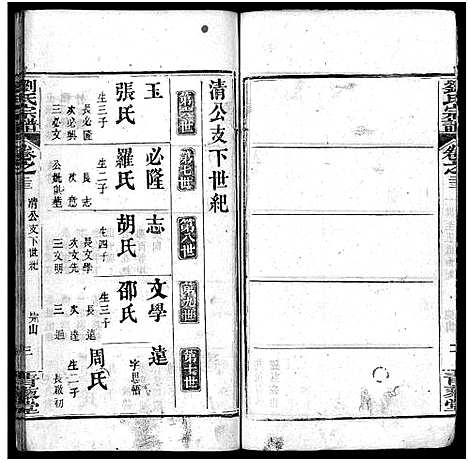 劉氏宗譜
卷之三
青藜堂
清公支下世紀
第六世
第七世
第八世
第九世
第十世
玉
必隆
志
文學
遠
字思語
張氏
生三子
長必隆
次必興
三必文
羅氏
生二子
長志
次意
胡氏
生四子
長文學
次文先
三文明
邵氏
生三子
長遠
次達
三通
周氏
生二子
長啟初
劉氏宗譜
卷之三
清公支下世紀
三
青藜堂